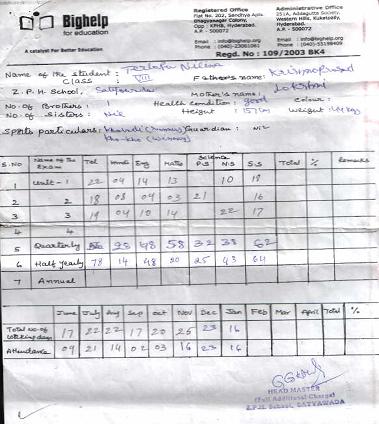 Bighelp
for education
A catalyst For Better Education
Registered Office
Flat No. 202, Sandhya Apts.
Bhagyanagar Colony,
Opp : KPHB, Hyderabad.
A.P. - 500072
Email : info@bighelp.org
Phone : (040)-23061061
Administrative Office
Western Hills, Kukatpally,
Hyderabad.
A.P. - 500072
Email : info@bighelp.org
Phone : (040)-55198409
Regd. No : 109/2003 BK4
Name of the student :
Class : VIII
Father's name:
Z.P.H School,
Mother's name: Lakshmi
No. of Brothers : 1
Health Condition : good
Colour :
No. of Sisters : Nil
Height : 157cm
Weight :
Sports particulars:
Guardian : Nil
S.No Name of the Exam Tel Hindi Eng Maths Science P.S N.S S.S Total % Remarks
1 Unit - 1 22 04 14 13 10 18
2 2 18 08 09 03 21 16
3 3 19 04 10 14 22 17
4 4
5 Quarterly 25 48 58 32 38 62
6 Half yearly 78 14 48 20 25 43 64
7 Annual
June July Aug Sep Oct Nov Dec Jan Feb Mar April Total %
Total No. of working days 17 22 22 17 20 25 23 16
Attendance 09 21 14 02 03 16 23 16
HEAD MASTER
(Full Additional Charge)
Z.P.H. School, SATYAWADA